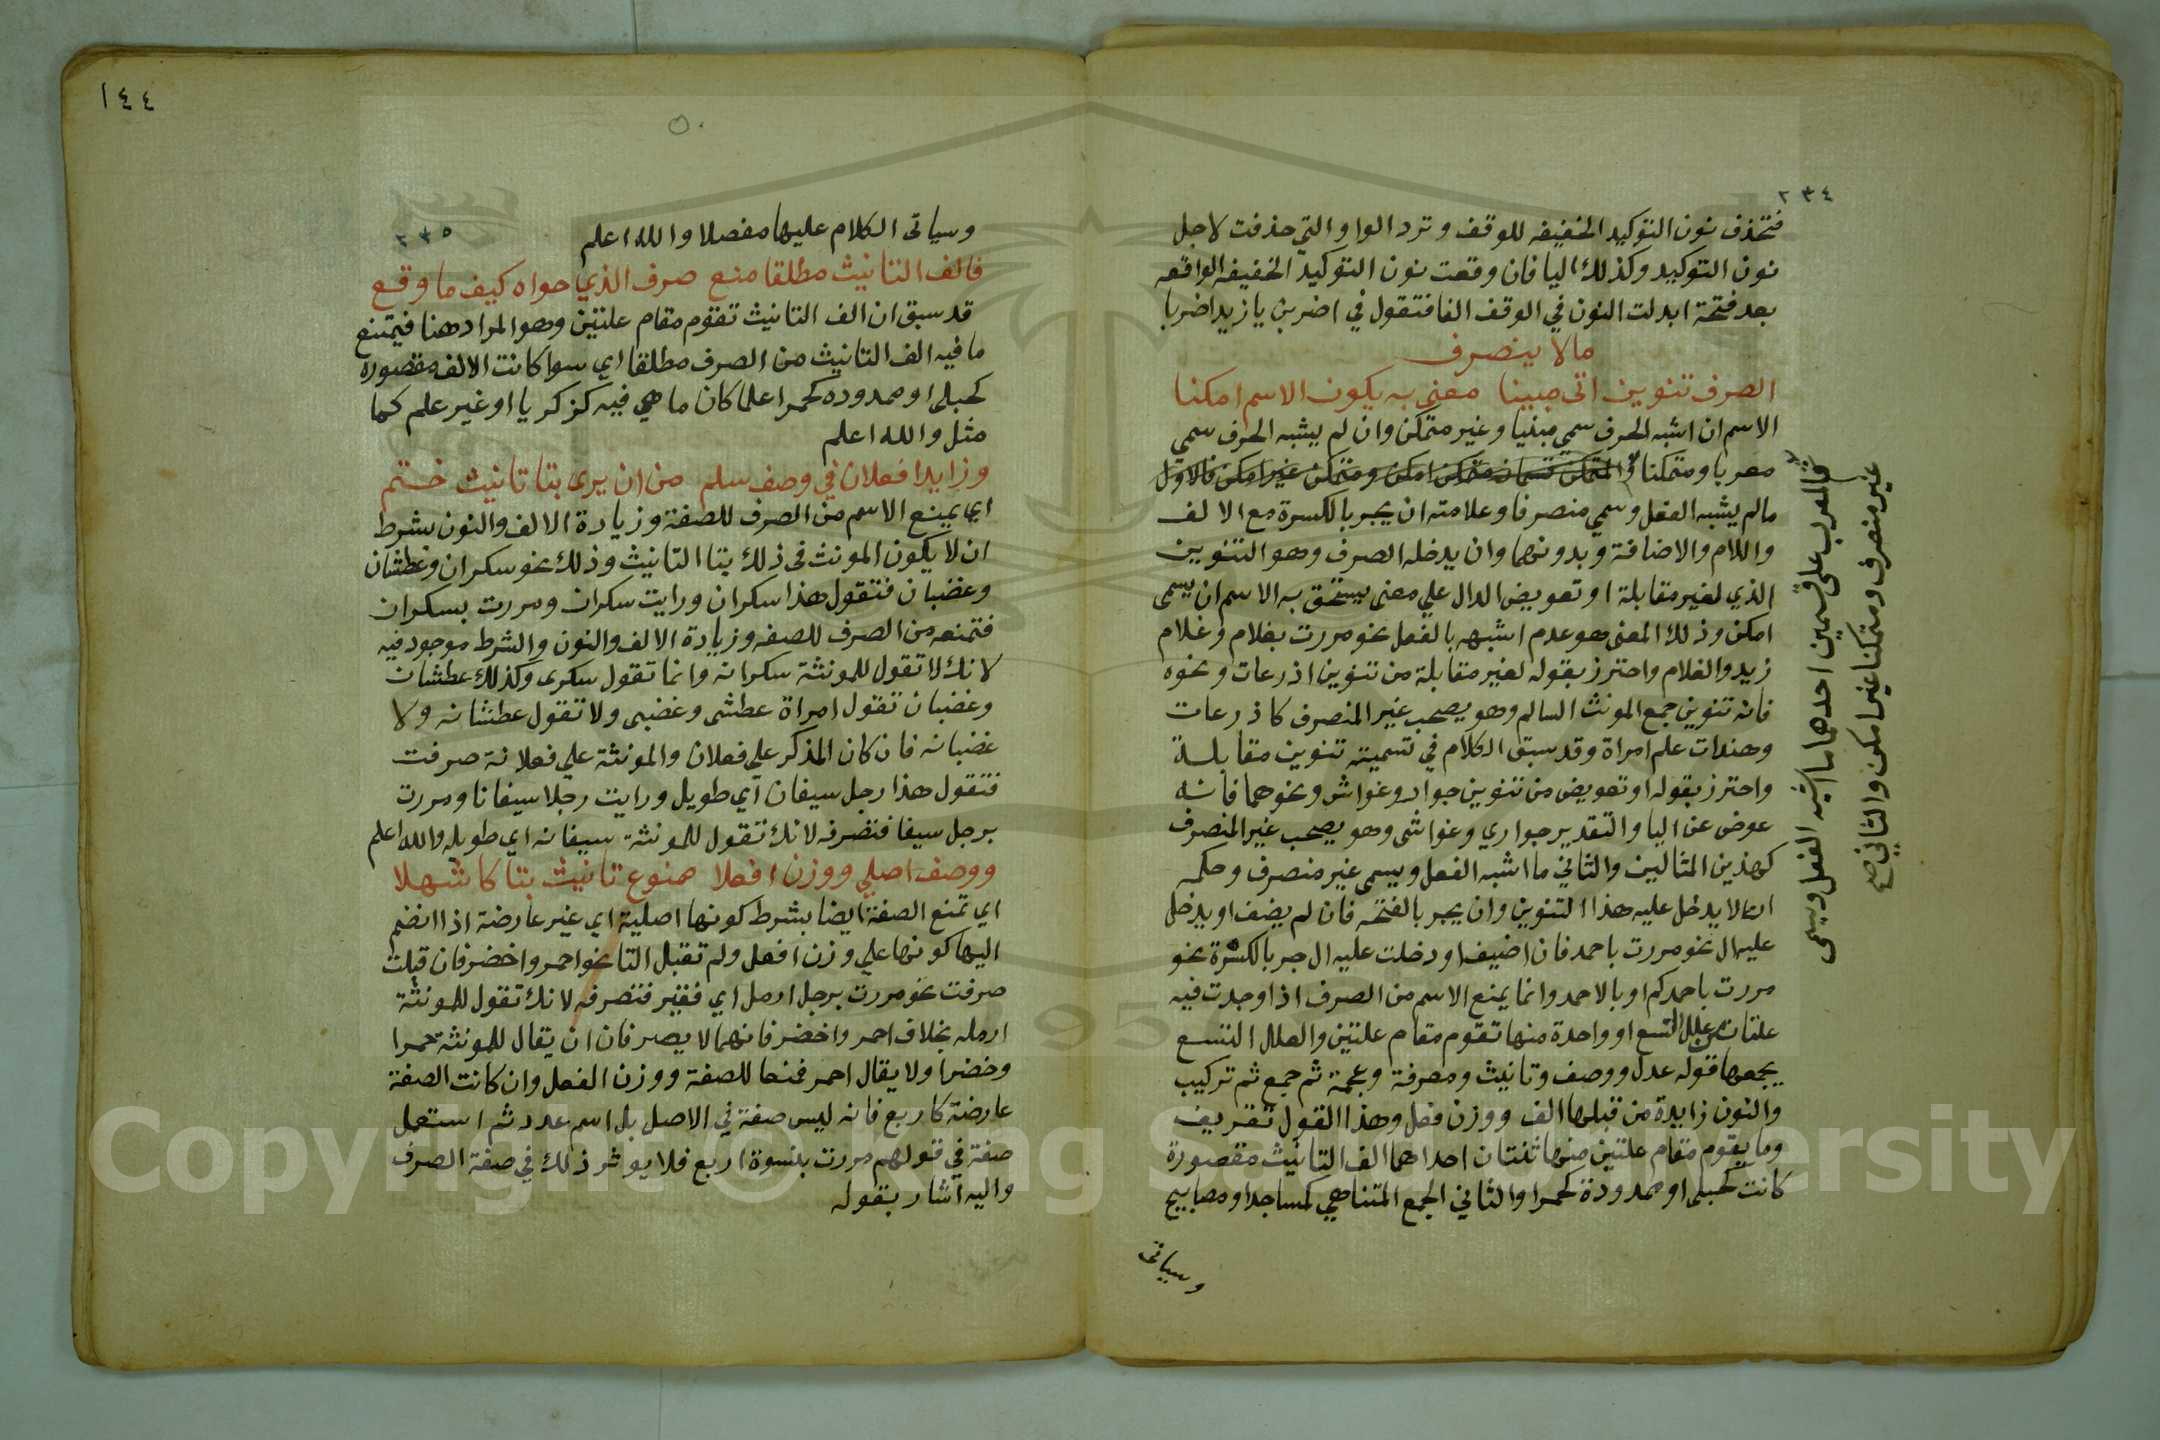 ٢٣٤
فتحذف نون التوكيد الخفيفه للوقف وترد الواو التي حذفت لاجل
نون التوكيد وكذلك اليا فان وقعت نون التوكيد الخفيفه الواقعه
بعد فتحة ابدلت النون في الوقف الفا فتقول في اضربن يا زيد اضربا
ما لا ينصرف
الصرف تنوين اتى مبينا معنى به يكون الاسم امكنا
الاسم ان اشبه الحرف سمي مبنيا وغير متمكن وان لم يشبه الحرف سمي
معربا ومتمكنا والمتمكن قسمان متمكن امكن ومتمكن غير امكن فالاول
مالم يشبه الفعل وسمي منصرفا وعلامته ان يجر بالكسرة مع الالف
واللام والاضافة وبدونهما وان يدخله الصرف وهو التنوين
الذي لغير مقابلة او تعويض الدال علي معنى يستحق به الاسم ان يسمى
امكن وذلك المعنى هو عدم اشبهه بالفعل نحو مررت بغلام وغلام
زيد والغلام واحترز بقوله لغير مقابلة من تنوين اذرعات ونحوه
فانه تنوين جمع المونث السالم وهو يصحب غير المنصرف كاذرعات
وهندات علم امراة وقد سبق الكلام في تسميته تنوين مقابلة
واحترز بقوله او تعويض من تنوين جوار وغواش ونحوهما فانه
عوض عن اليا والتقدير جواري وغواشى وهو يصحب غير المنصرف
كهذين المثالين والثاني ما اشبه الفعل ويسمى غير منصرف وحكمه
ان لا يدخل عليه هذا التنوين وان يجر بالفتحه فان لم يضف او يدخل
عليه ال نحو مررت باحمد فان اضيف او دخلت عليه ال جر بالكسرة نحو
مررت باحمدكم او بالاحمد وانما يمنع الاسم من الصرف اذا وجدت فيه
علتان من علل التسع او واحدة منها تقوم مقام علتين والعلل التسع
يجمعها قوله عدل ووصف وتانيث ومعرفة وعجمة ثم جمع ثم تركيب
والنون زايدة من قبلها الف ووزن فعل وهذا القول تقريف
وما يقوم مقام علتين منها ثنتان احداهما الف التانيث مقصورة
كانت كحبلى او ممدودة كحمرا والثاني الجمع المتناهي كمساجد او مصابيح
وسياتى
والمعرب على قسمين احدهما ما اشبه الفعل ويسمى
غير منصرف ومتمكنا غير امكن والثاني صح
١٤٤
٢٣٥
وسياتى الكلام عليها مفصلا والله اعلم
فالف التانيث مطلقا منع صرف الذي حواه كيف ما وقع
قد سبق ان الف التانيث تقوم مقام علتين وهو المراد هنا فيمتنع
ما فيه الف التانيث من الصرف مطلقا اي سوا كانت الالف مقصورة
كحبلى او ممدوده كحمرا علما كان ما هي فيه كزكريا او غير علم كما
مثل والله اعلم
وزايدا فعلان في وصف سلم من ان يرى بتا تانيث ختم
اي يمنع الاسم من الصرف للصفة وزيادة الالف والنون بشرط
ان لا يكون المونث فى ذلك بتا التانيث وذلك نحو سكران وعطشان
وغضبان فتقول هذا سكران ورايت سكران ومررت بسكران
فتمنعه من الصرف للصفه وزيادة الالف والنون والشرط موجود فيه
لانك لا تقول للمونثة سكرانه وانما تقول سكرى وكذلك عطشان
وغضبان تقول امراة عطشى وغضبى ولا تقول عطشانه ولا
غضبانه فان كان المذكر علي فعلان والمونثة علي فعلانة صرفت
فتقول هذا رجل سيفان اي طويل ورايت رجلا سيفانا ومررت
برجل سيفا فتصرفه لانك تقول للمونثة سيفانه اي طويله والله اعلم
ووصف اصلي ووزن افعلا ممنوع تانيث بتا كاشهلا
اي تمنع الصفة ايضا بشرط كونها اصلية اي غير عارضة اذا انضم
اليها كونها علي وزن افعل ولم تقبل التا نحو احمر واخضر فان قبلت
صرفت نحو مررت برجل ارمل اي فقير فتصرفه لانك تقول للمونثة
ارمله بخلاف احمر واخضر فانهما لا يصرفان ان يقال للمونثة حمرا
وخضرا ولا يقال احمر فمنعا للصفة ووزن الفعل وان كانت الصفة
عارضة كاربع فانه ليس صفة في الاصل بل اسم عدد ثم استعمل
صفة في قولهم مررت بنسوة اربع فلا يوثر ذلك في صفة الصرف
واليه اشار بقوله
Copyright © King Saud University